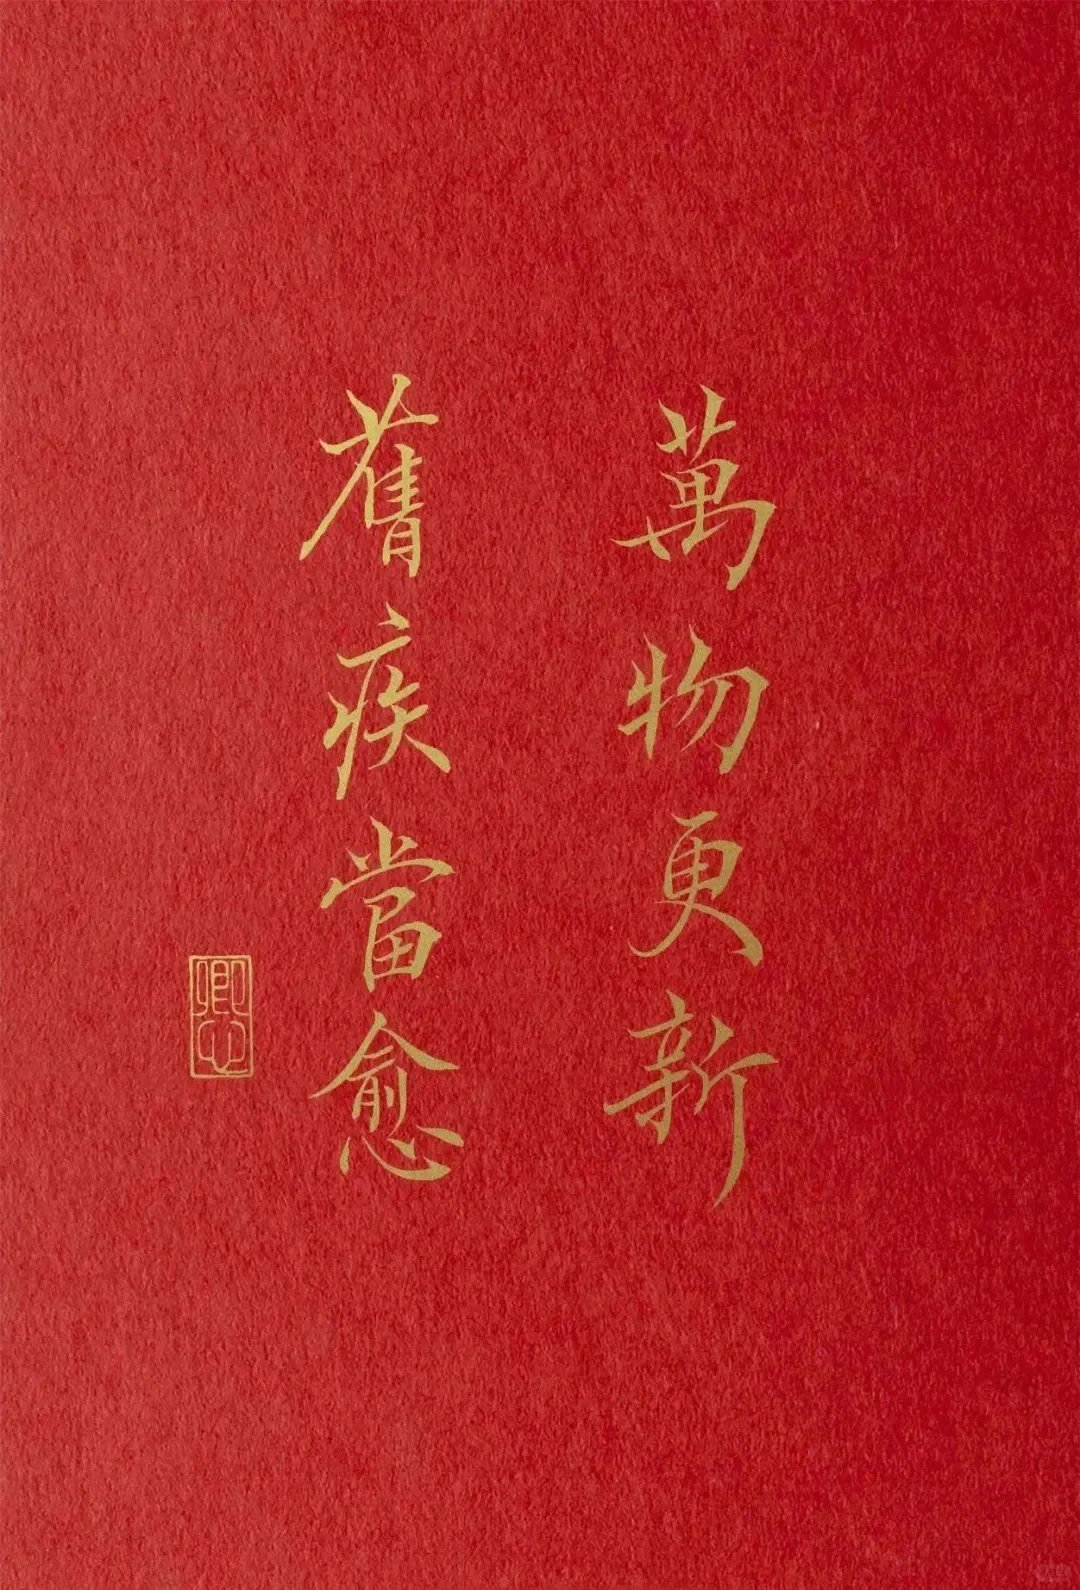 萬物更新
舊疾當愈
卿心